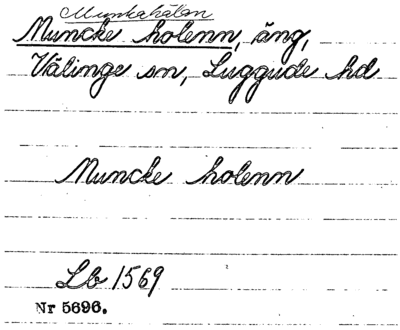 Munkahålan
Muncke holenn, äng,
Välinge sn, Luggude hd
Muncke holenn
Lb 1569
Nr 5696.